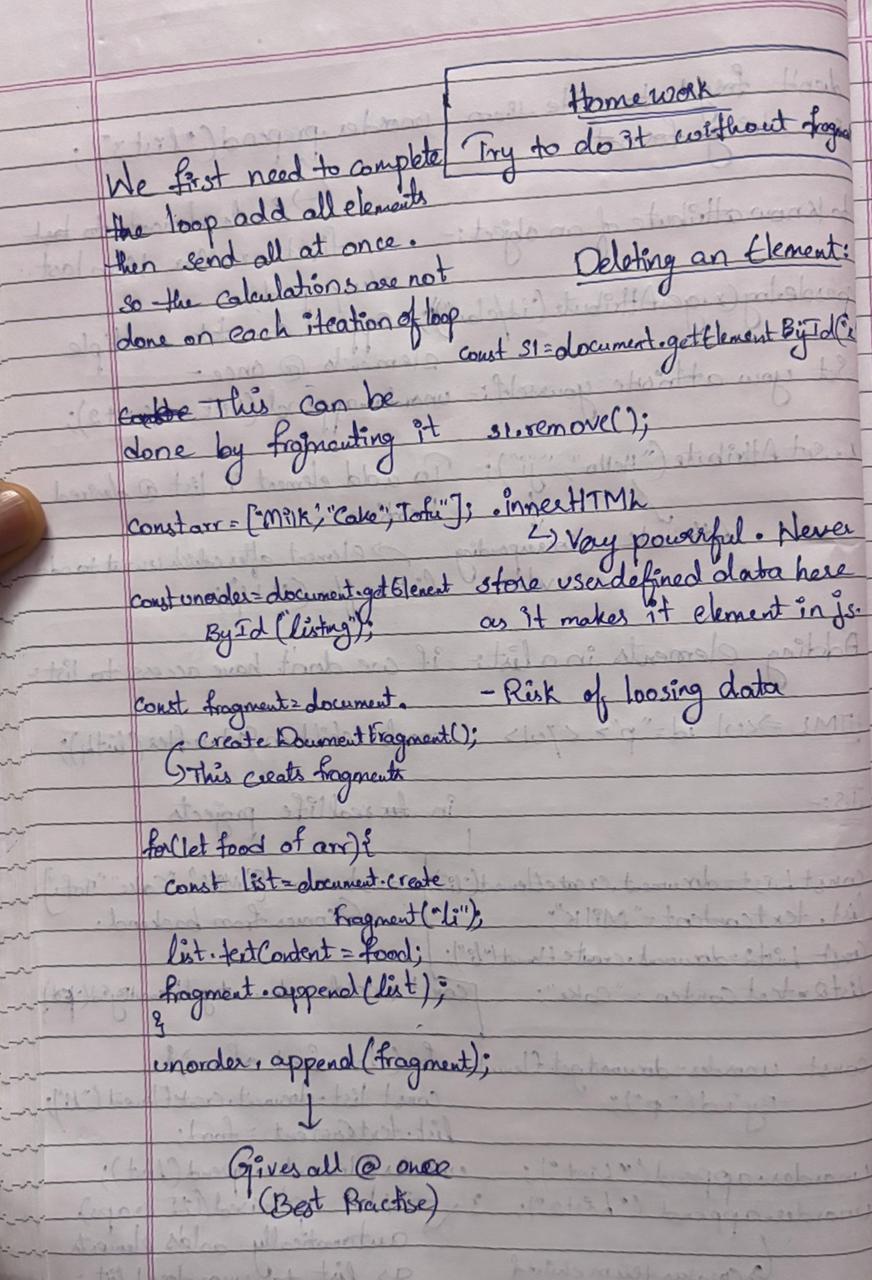 Homework
Try to do it without
We first need to complete
the loop add all elements
then send all at once.
so the calculations are not
done on each iteation of loop
This can be
done by fragmenting it
const arr = ["Milk", "Cake", Tofu"];
const unorder = document.getElement
ById ("listing");
const fragment = document.
Create Document Fragment();
↳ This creats fragments
for(let food of arr){
const list = document.create
Fragment("li");
list.textContent = food;
fragment.append(list);
}
unorder. append(fragment);
↓
Gives all @ once
(Best Practise)
Deleting an Element:
const s1 = document.getElement ById(
s1.remove();
.innerHTML
↳ Very powerful. Never
store userdefined data here
as it makes it element in js.
- Risk of loosing data